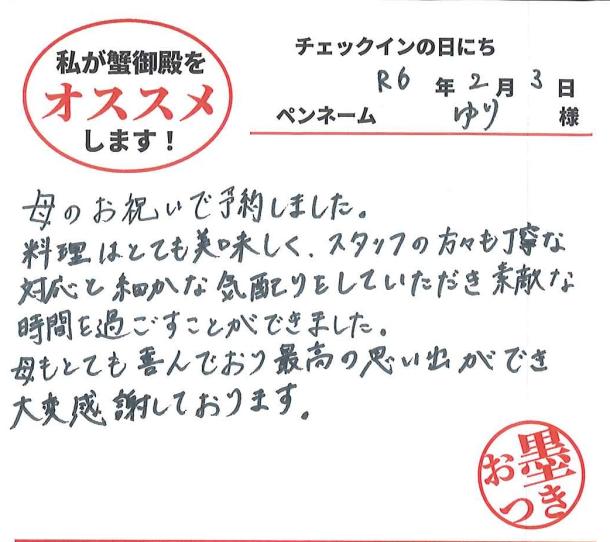 私が蟹御殿を
オススメ
します！
チェックインの日にち
R6 年 2 月 3 日
ペンネーム ゆり 様
母のお祝いで予約しました。
料理はとても美味しく、スタッフの方々も丁寧な
対応と細かな気配りをしていただき素敵な
時間を過ごすことができました。
母もとても喜んでおり最高の思い出ができ
大変感謝しております。
お墨
つき